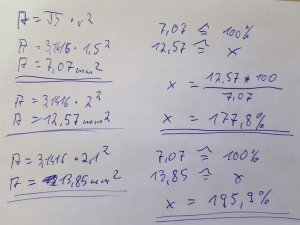 A = π · r²
A = 3,1416 · 1,5²
A = 7,07 mm²
A = 3,1416 · 2²
A = 12,57 mm²
A = 3,1416 · 2,1²
A = 13,85 mm²
7,07 ≙ 100%
12,57 ≙ x
x = 12,57 * 100 / 7,07
x = 177,8%
7,07 ≙ 100%
13,85 ≙ x
x = 195,9%